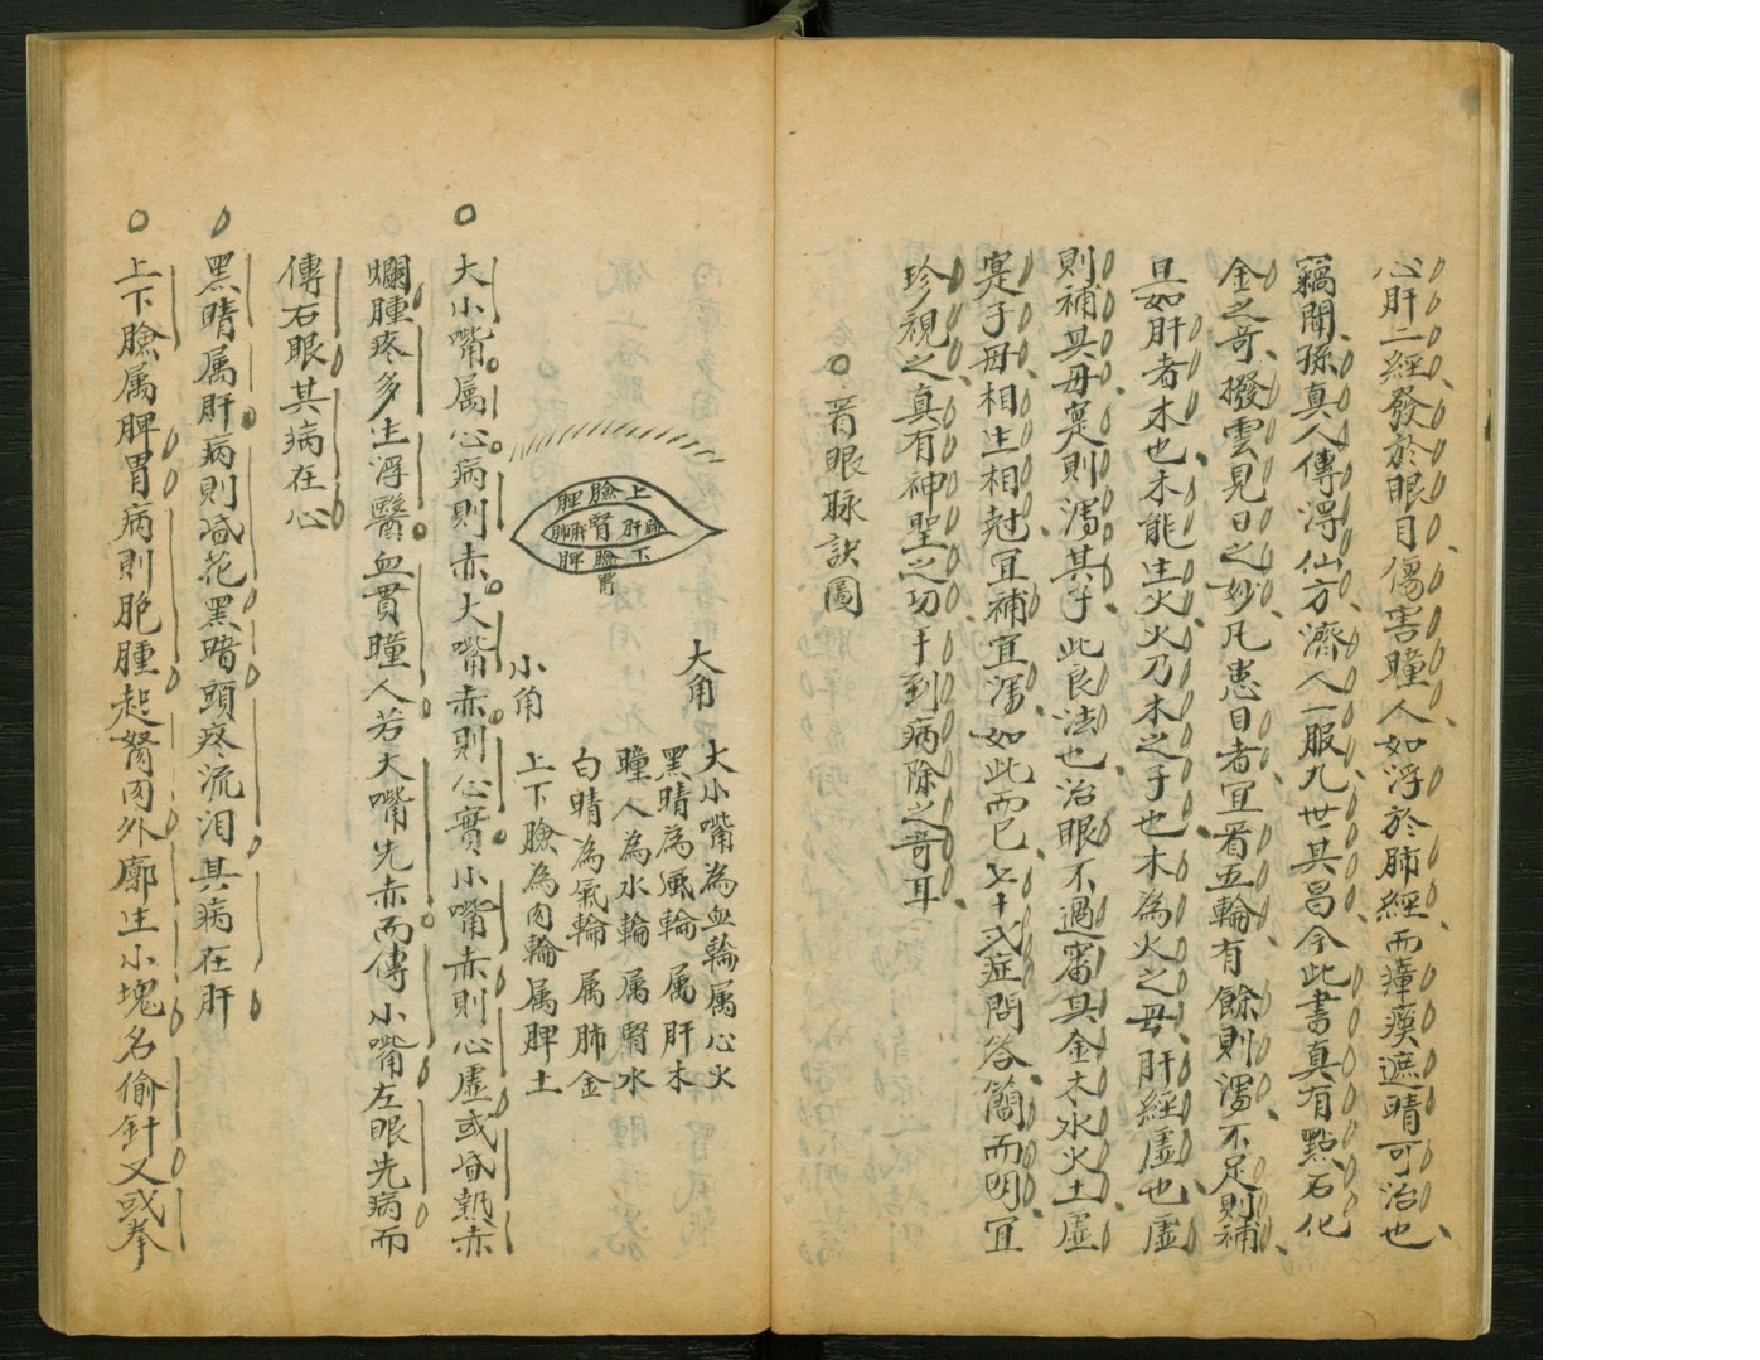 心肝二經發於眼目傷害瞳人如浮於肺經而瘴瘼遮睛可治也
竊聞孫真人傳淂仙方濟人一服九世其昌今此書真有點石化
金之竒撥雲見日之妙凡患目者宜看五輪有餘則瀉不足則補
且如肝者木也木能生火火乃木之子也木為火之母肝經虛也虛
則補其母寔則瀉其子此良法也治眼不過審其金木水火土虛
寔子母相生相尅宜補宜瀉如此而已七十弍症問答簡而明宜
珍視之真有神聖之功手到病除之竒耳
看眼脉訣圖
上臉脾
肝腎
下臉脾
胃
大角
小角
大小嘴為血輪属心火
黑睛為風輪属肝木
瞳人為水輪属腎水
白睛為氣輪属肺金
上下臉為肉輪属脾土
大小嘴属心病則赤大嘴赤則心實小嘴赤則心虛或飧熱赤
爛腫疼多生浮翳血貫瞳人若大嘴先赤而傳小嘴左眼先病而
傳右眼其病在心
黑睛属肝病則飧花黑暗頭疼流泪其病在肝
上下臉属脾胃病則胞腫起胬肉外廓生小塊名偷針又或拳